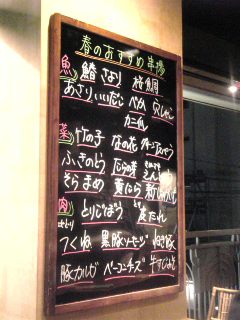 春のおすすめ串揚
魚 鰆 さより 桜鯛
あさり いいだこ
カニ爪
菜 竹の子 なの花 グリーンアスパラ
ふきのとう たらの芽
そらまめ 黄にら 新じゃが
肉 とりごぼう
つくね 黒豚ソーセージ ねぎ豚
豚カルビ ベーコンチーズ 牛すじねぎ